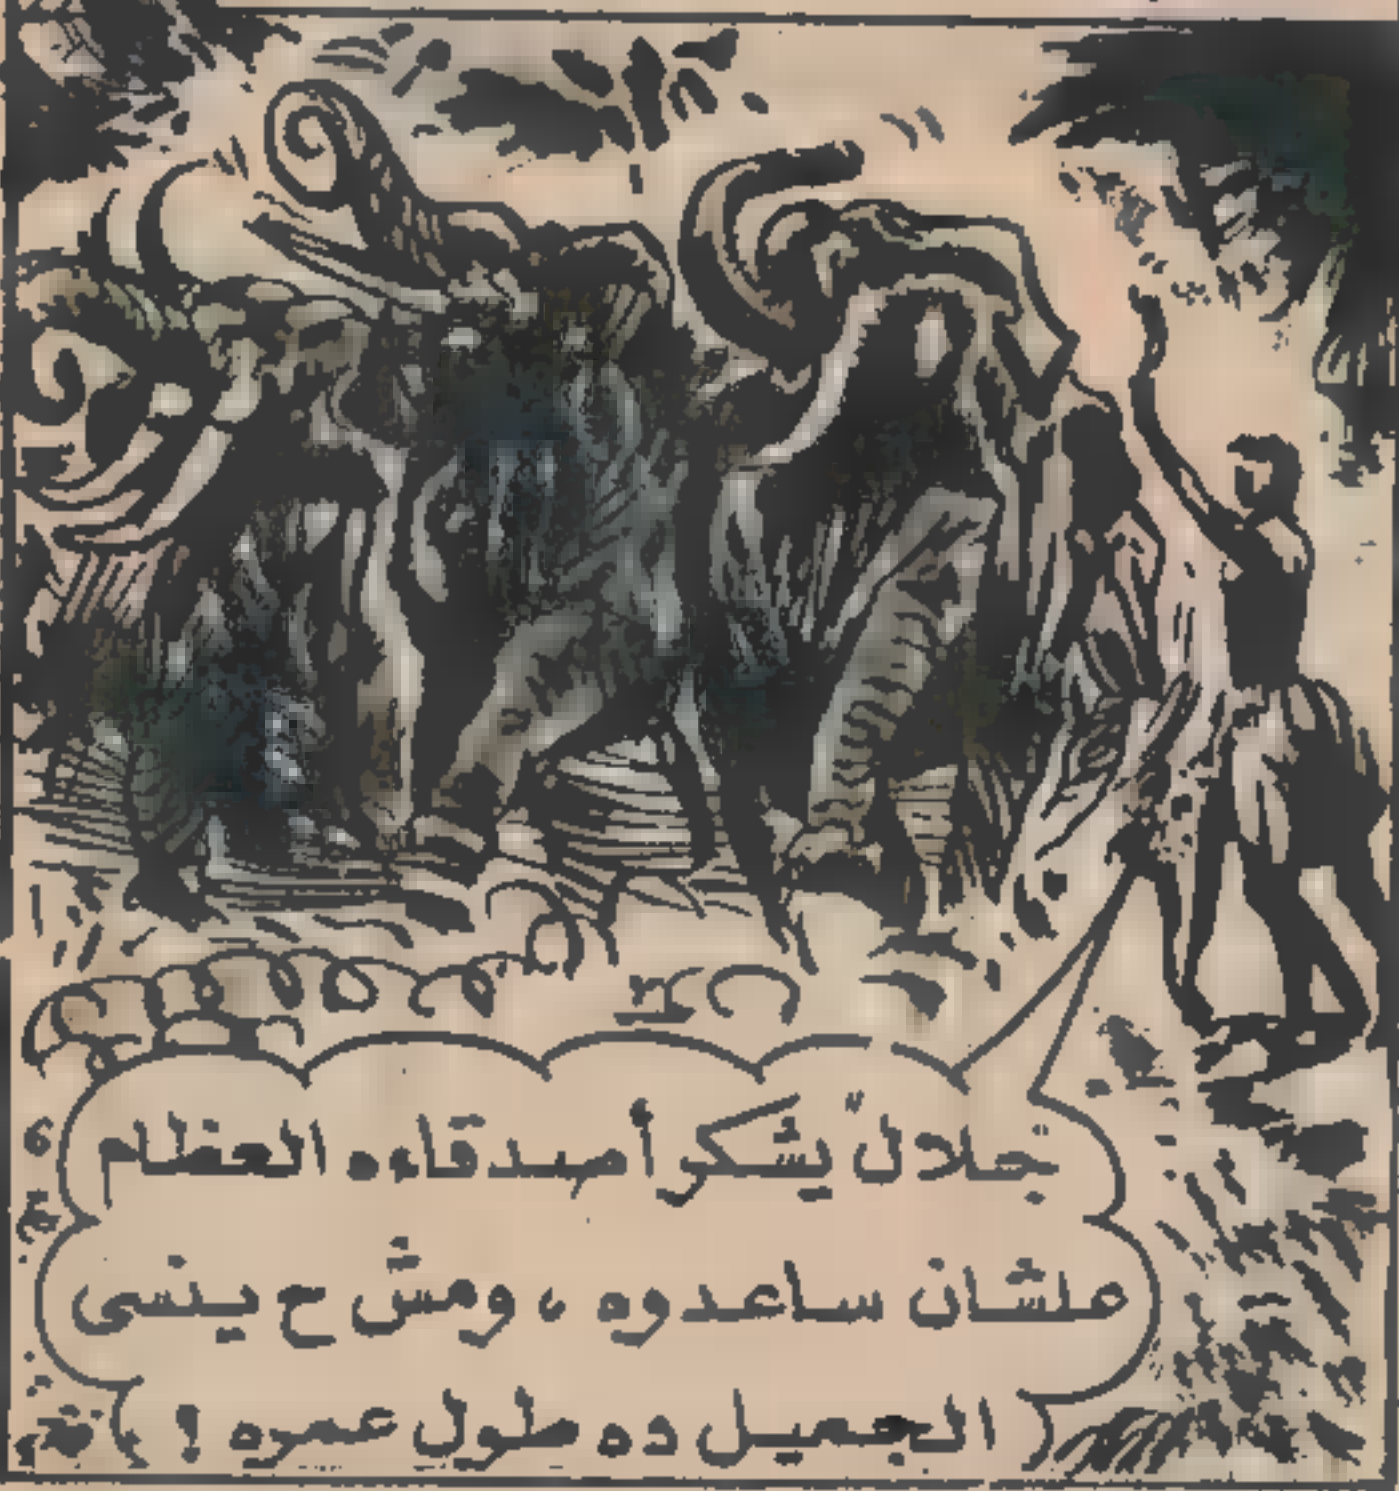 جلال يشكر أصدقاءه العظام
علشان ساعدوه ، ومش ح ينسى
الجميل ده طول عمره !